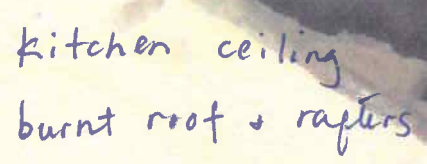 kitchen ceiling
burnt roof & rafters